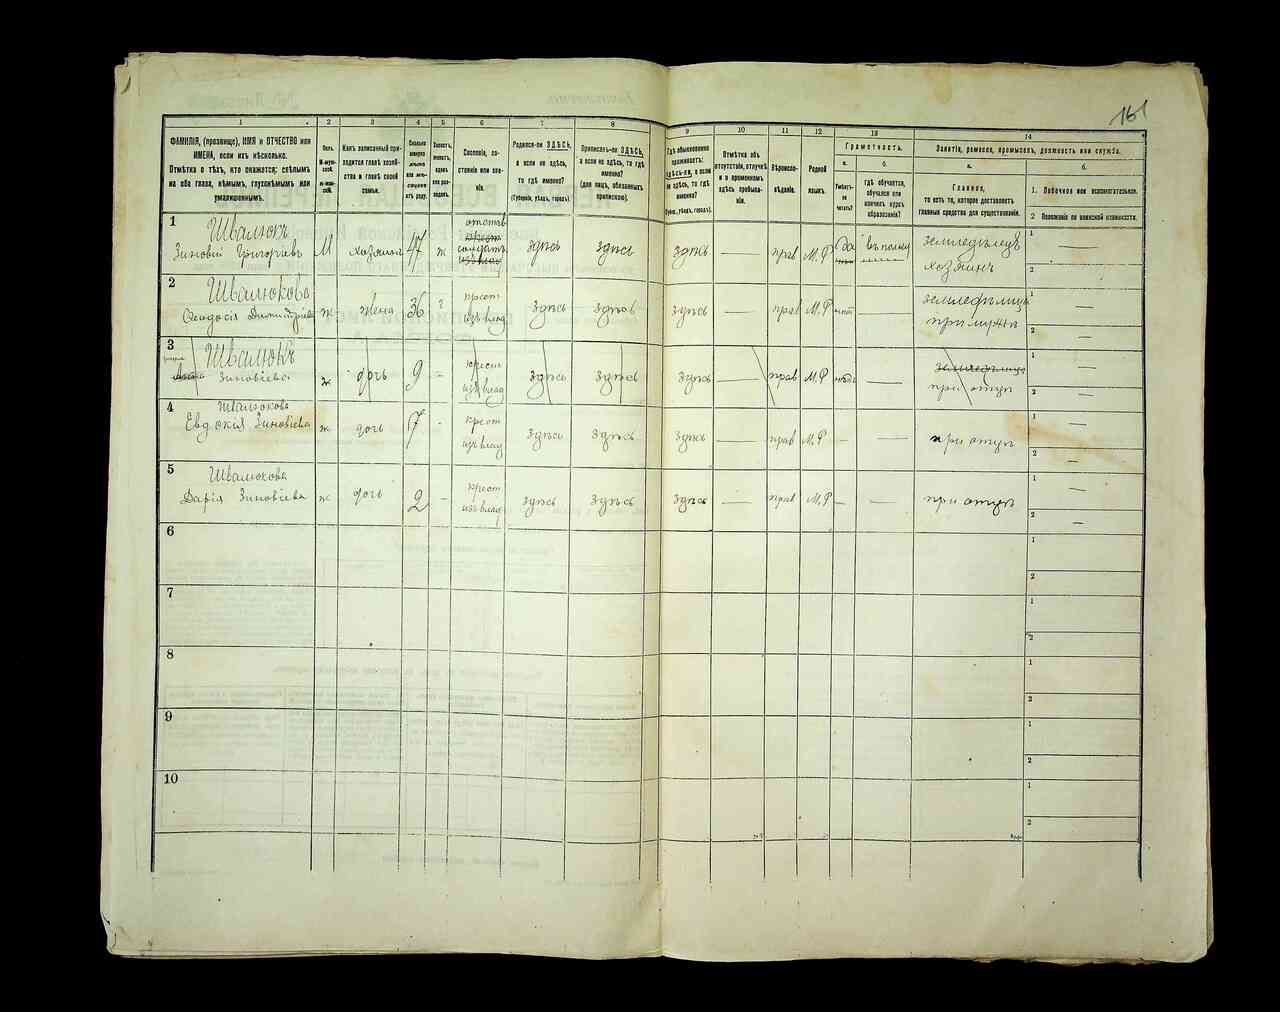 161
1 2 3 4 5 6 7 8 9 10 11 12 13 14
ФАМИЛІЯ, (прозвище), ИМЯ и ОТЧЕСТВО или ИМЕНА, если ихъ нѣсколько.
Отмѣтка о тѣхъ, кто окажется: слѣпымъ на оба глаза, нѣмымъ, глухонѣмымъ или умалишеннымъ.
Полъ.
М-мужской.
ж-женскій.
Какъ записанный приходится главѣ хозяйства и главѣ своей семьи.
Сколько минуло лѣтъ или мѣсяцевъ отъ роду.
Холостъ, женатъ, вдовъ или разведенъ.
Сословіе, состояніе или званіе.
Родился-ли ЗДѢСЬ, а если не здѣсь, то гдѣ именно?
(Губернія, уѣздъ, городъ).
Приписанъ-ли ЗДѢСЬ, а если не здѣсь, то гдѣ именно?
(для лицъ, обязанныхъ припискою).
Гдѣ обыкновенно проживаетъ: здѣсь-ли, а если не здѣсь, то гдѣ именно?
(Губ., уѣздъ, городъ).
Отмѣтка объ отсутствіи, отлучкѣ и о временномъ здѣсь пребываніи.
Вѣроисповѣданіе.
Родной языкъ.
Грамотность.
а. Умѣетъ-ли читать?
б. гдѣ обучается, обучался или кончилъ курсъ образованія?
Занятіе, ремесло, промыселъ, должность или служба.
а. Главное, то есть то, которое доставляетъ главныя средства для существованія.
б.
1. Побочное или вспомогательное.
2 Положеніе по воинской повинности.
1 Швалюкъ
Зиновій Григоріевъ М хозяинъ 47 ж отстав солдатъ здѣсь здѣсь здѣсь — прав М.Р да въ полку земледѣлецъ хозяинъ 1 — 2
2 Швалюкова
Феодосія Димитріева ж жена 36 крест изъ влад здѣсь здѣсь здѣсь — прав М.Р нѣт земледѣлица при мужѣ 1 — 2 —
3 Швалюкъ
Зиновіева ж дочь 9 - крест изъ влад здѣсь здѣсь здѣсь — прав М.Р — при отцѣ 1 — 2 —
4 Швалюкова
Евдокія Зиновіева ж дочь 7 - крест изъ влад здѣсь здѣсь здѣсь — прав М.Р — — при отцѣ 1 — 2 —
5 Швалюкова
Дарія Зиновіева ж дочь 2 - крест изъ влад здѣсь здѣсь здѣсь — прав М.Р — — при отцѣ 1 — 2 —
6 1 2
7 1 2
8 1 2
9 1 2
10 1 2